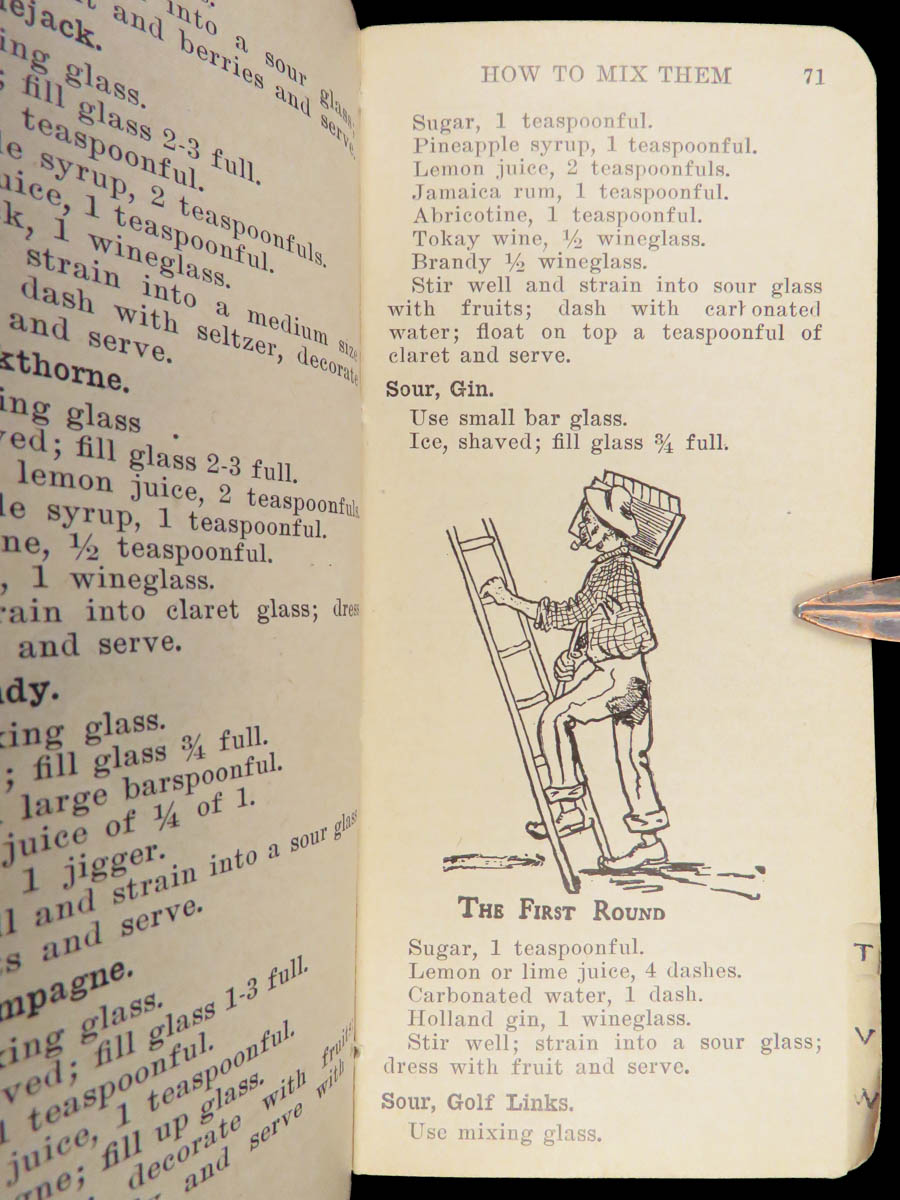 into a sour glass;
and berries and serve.
ejack.
ing glass.
; fill glass 2-3 full.
teaspoonful.
le syrup, 2 teaspoonfuls.
uice, 1 teaspoonful.
k, 1 wineglass.
strain into a medium size
dash with seltzer, decorate
and serve.
kthorne.
ing glass
ved; fill glass 2-3 full.
lemon juice, 2 teaspoonfuls
le syrup, 1 teaspoonful.
ne, ½ teaspoonful.
, 1 wineglass.
rain into claret glass; dress
and serve.
dy.
king glass.
; fill glass ¾ full.
large barspoonful.
juice of ¼ of 1.
1 jigger.
ll and strain into a sour glass
ts and serve.
mpagne.
king glass.
ved; fill glass 1-3 full.
1 teaspoonful.
juice, 1 teaspoonful.
gne; fill up glass.
decorate with fruits
and serve with
HOW TO MIX THEM 71
Sugar, 1 teaspoonful.
Pineapple syrup, 1 teaspoonful.
Lemon juice, 2 teaspoonfuls.
Jamaica rum, 1 teaspoonful.
Abricotine, 1 teaspoonful.
Tokay wine, ½ wineglass.
Brandy ½ wineglass.
Stir well and strain into sour glass
with fruits; dash with carbonated
water; float on top a teaspoonful of
claret and serve.
Sour, Gin.
Use small bar glass.
Ice, shaved; fill glass ¾ full.
THE FIRST ROUND
Sugar, 1 teaspoonful.
Lemon or lime juice, 4 dashes.
Carbonated water, 1 dash.
Holland gin, 1 wineglass.
Stir well; strain into a sour glass;
dress with fruit and serve.
Sour, Golf Links.
Use mixing glass.
T
V
W